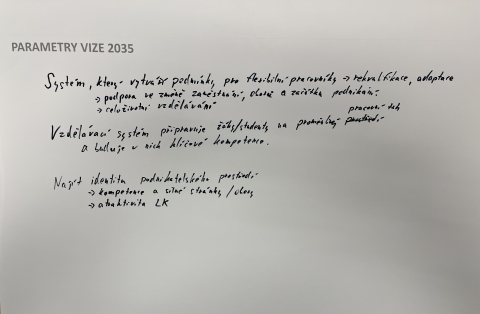 PARAMETRY VIZE 2035
Systém, který vytváří podmínky pro flexibilní pracovníky → rekvalifikace, adaptace
→ podpora ve změně zaměstnání, oboru a začátku podnikání
→ celoživotní vzdělávání
pracovní trh
Vzdělávací systém připravuje žáky/studenty na proměnlivý prostředí
a buduje v nich klíčové kompetence.
Najít identitu podnikatelského prostředí
→ kompetence a silné stránky / obory
→ atraktivita LK